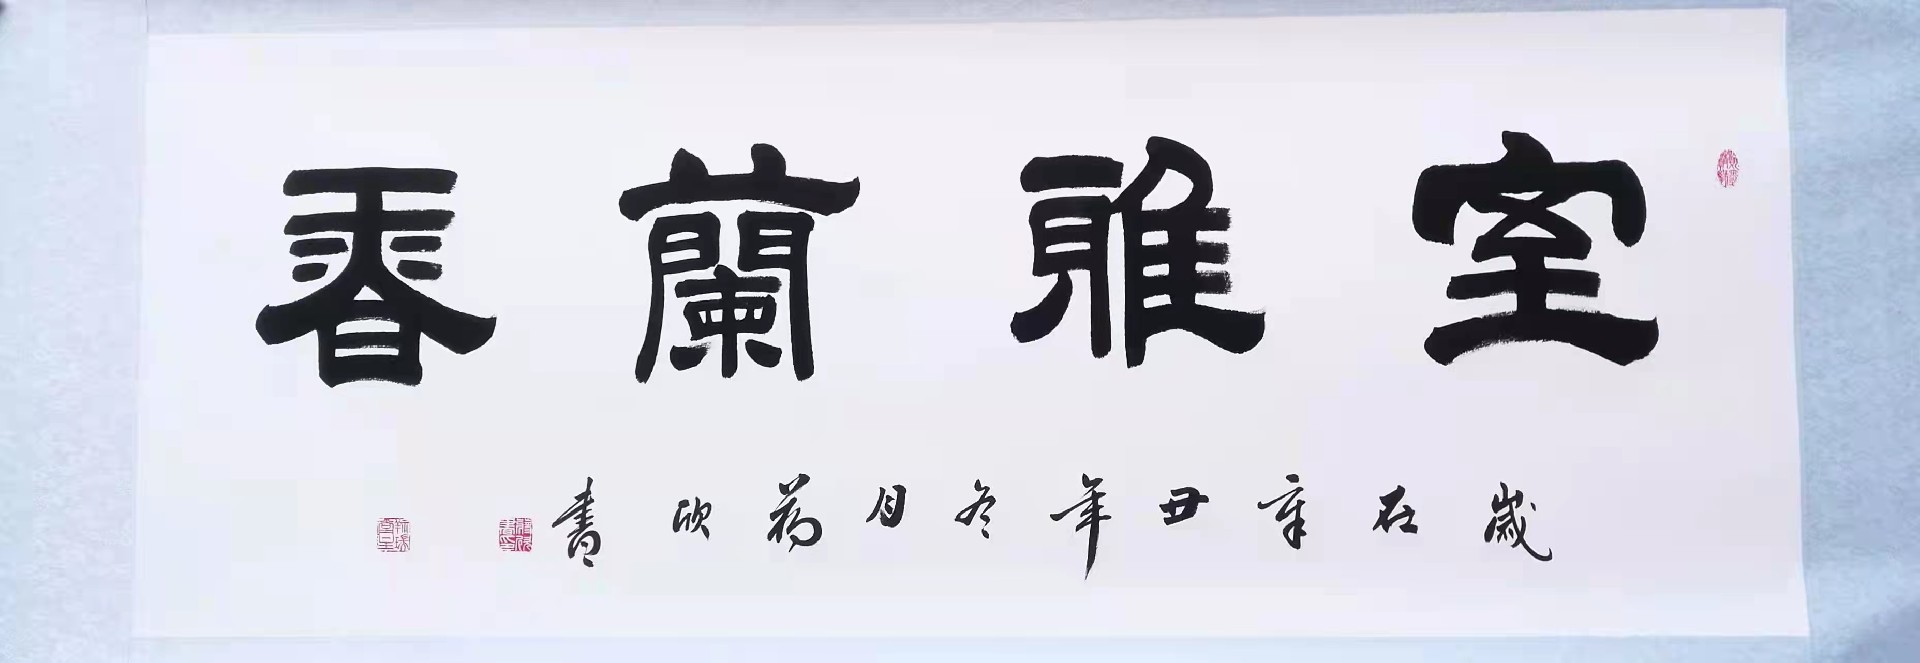 室雅蘭香
歲在辛丑年冬月荷欣書